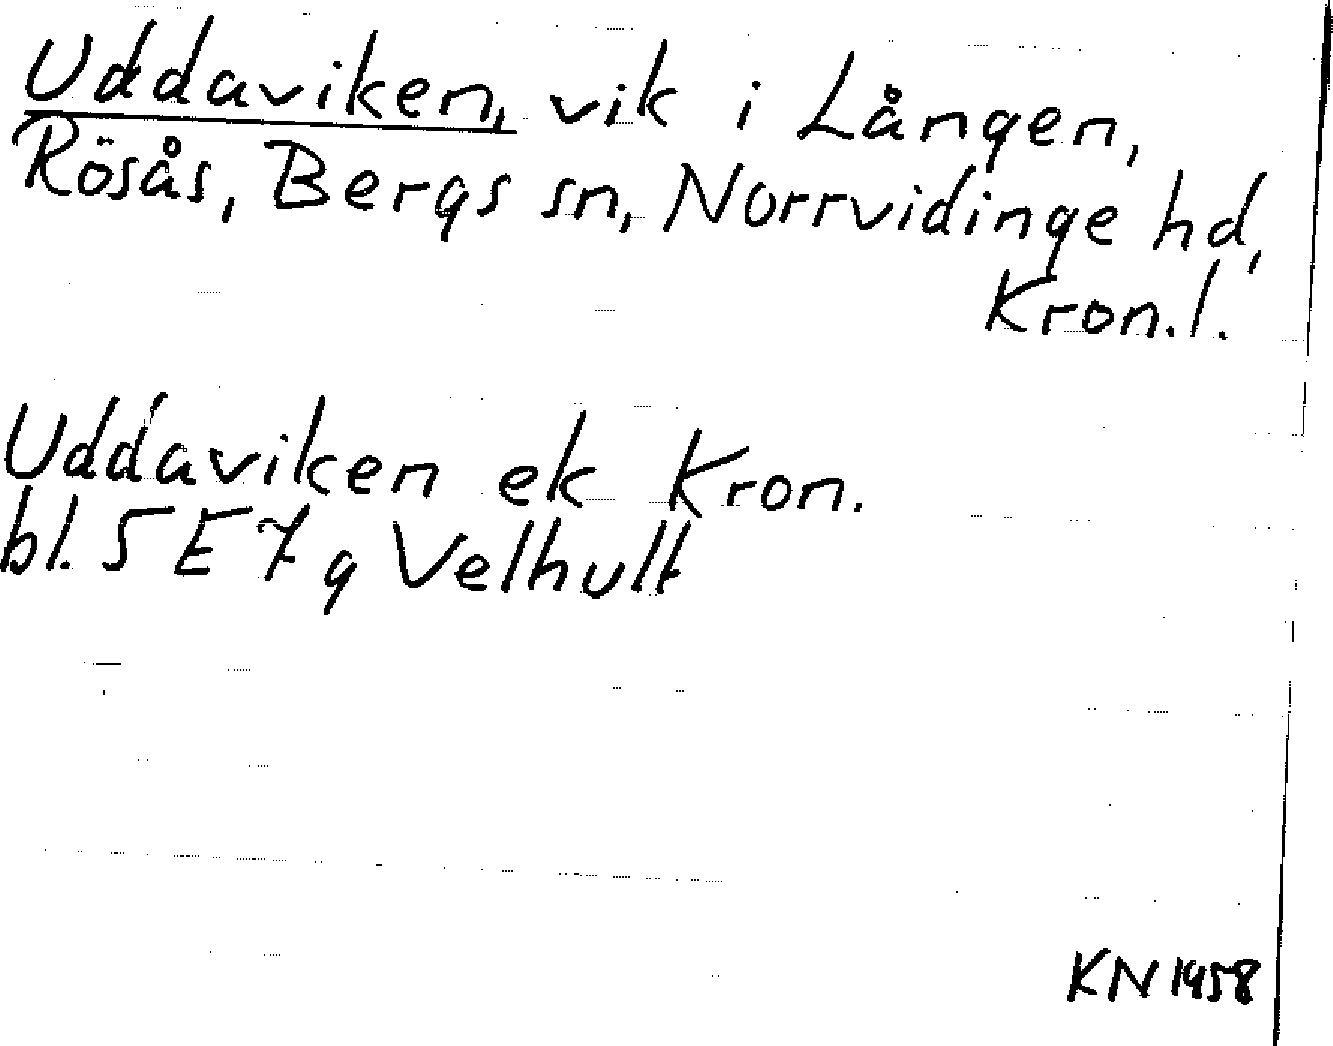 Uddaviken, vik i Lången,
Rösås, Bergs sn, Norrvidinge hd,
Kron.l.
Uddaviken ek Kron.
bl. 5 E 7 g Velhult
KN 1958